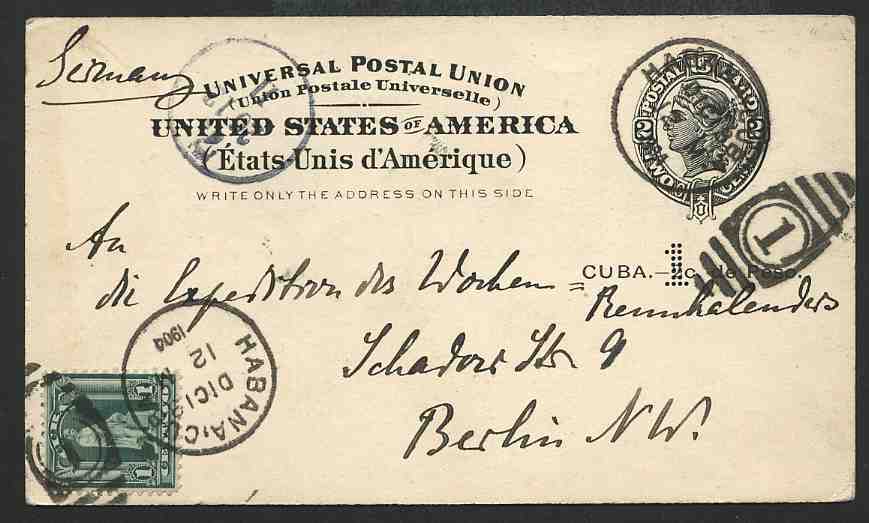 Germany
UNIVERSAL POSTAL UNION
(Union Postale Universelle)
UNITED STATES OF AMERICA
(États-Unis d'Amérique)
WRITE ONLY THE ADDRESS ON THIS SIDE
POSTAL CARD
2 2
1
CUBA.–2c. de Peso.
1
An
die Expedition des Wochen=
Rennkalenders
Schadow Str. 9
Berlin N.W.
HABANA, CUBA
DIC
12
1904
1 1